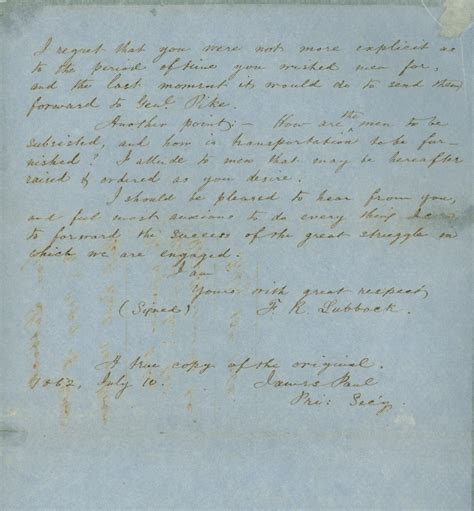 I regret that you were not more explicit as
to the period of time you wished men for,
and the last moment it would do to send them
forward to Genl. Pike.
Another point; – How are the men to be
subsisted, and how is transportation to be fur-
nished? I allude to men that may be hereafter
raised & ordered as you desire.
I should be pleased to hear from you,
and feel most anxious to do every thing I can
to forward the success of the great struggle in
which we are engaged.
I am
Yours with great respect,
(Signed) F. R. Lubbock.
A true copy of the original.
1862, July 10. James Paul
Pri: Sec'y.